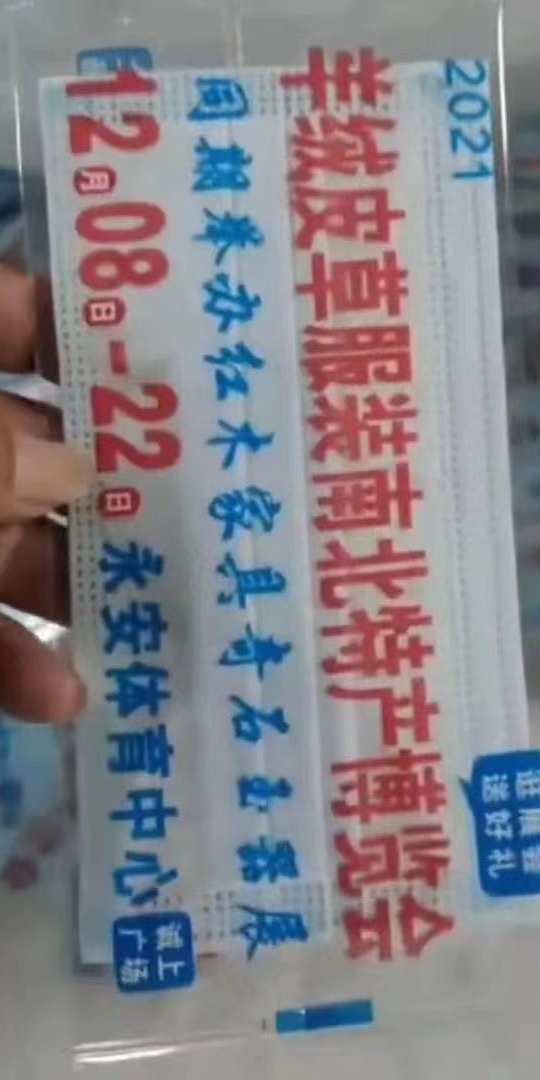 2021
羊绒皮草服装南北特产博览会
逛展会
送好礼
同期举办红木家具奇石玉器展
12月08日-22日永安体育中心
诚上
广场